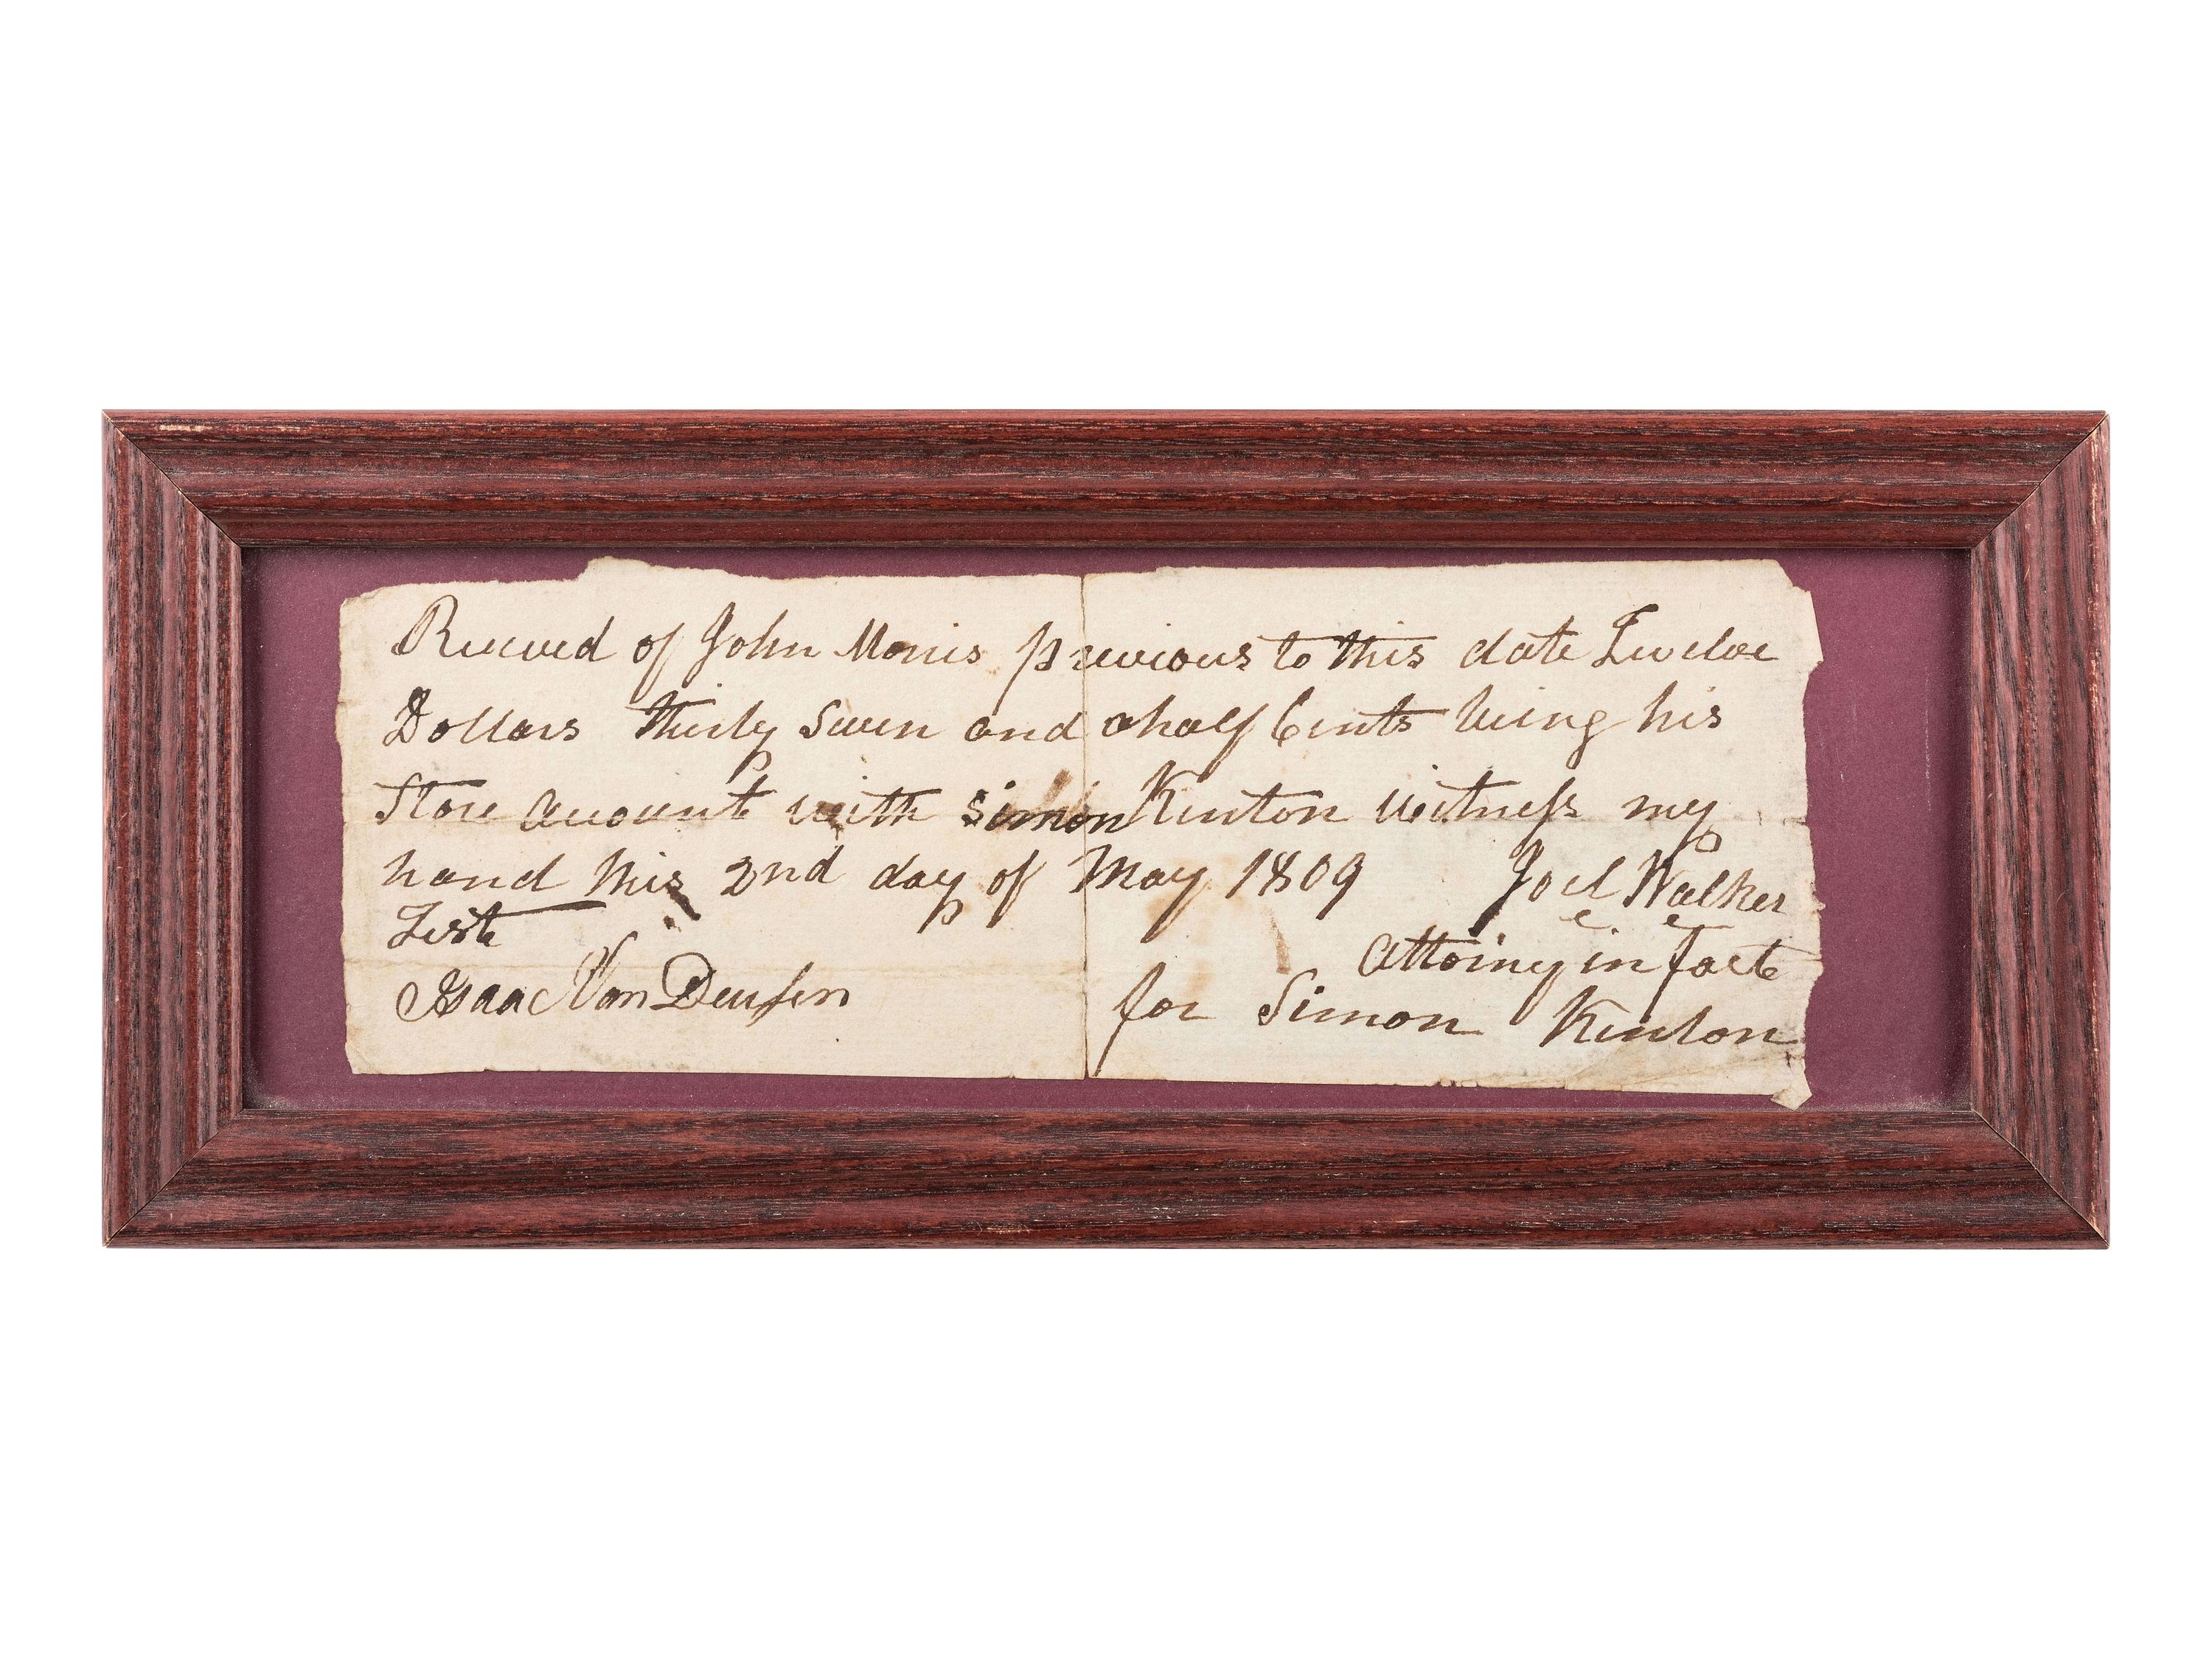 Received of John Morris previous to this date Twelve
Dollars thirty Seven and a half Cents being his
Store account with Simon Kenton witness my
hand this 2nd day of May 1809 Joel Walker
Test
attorney in facte
Isaac Van Deusen
for Simon Kenton